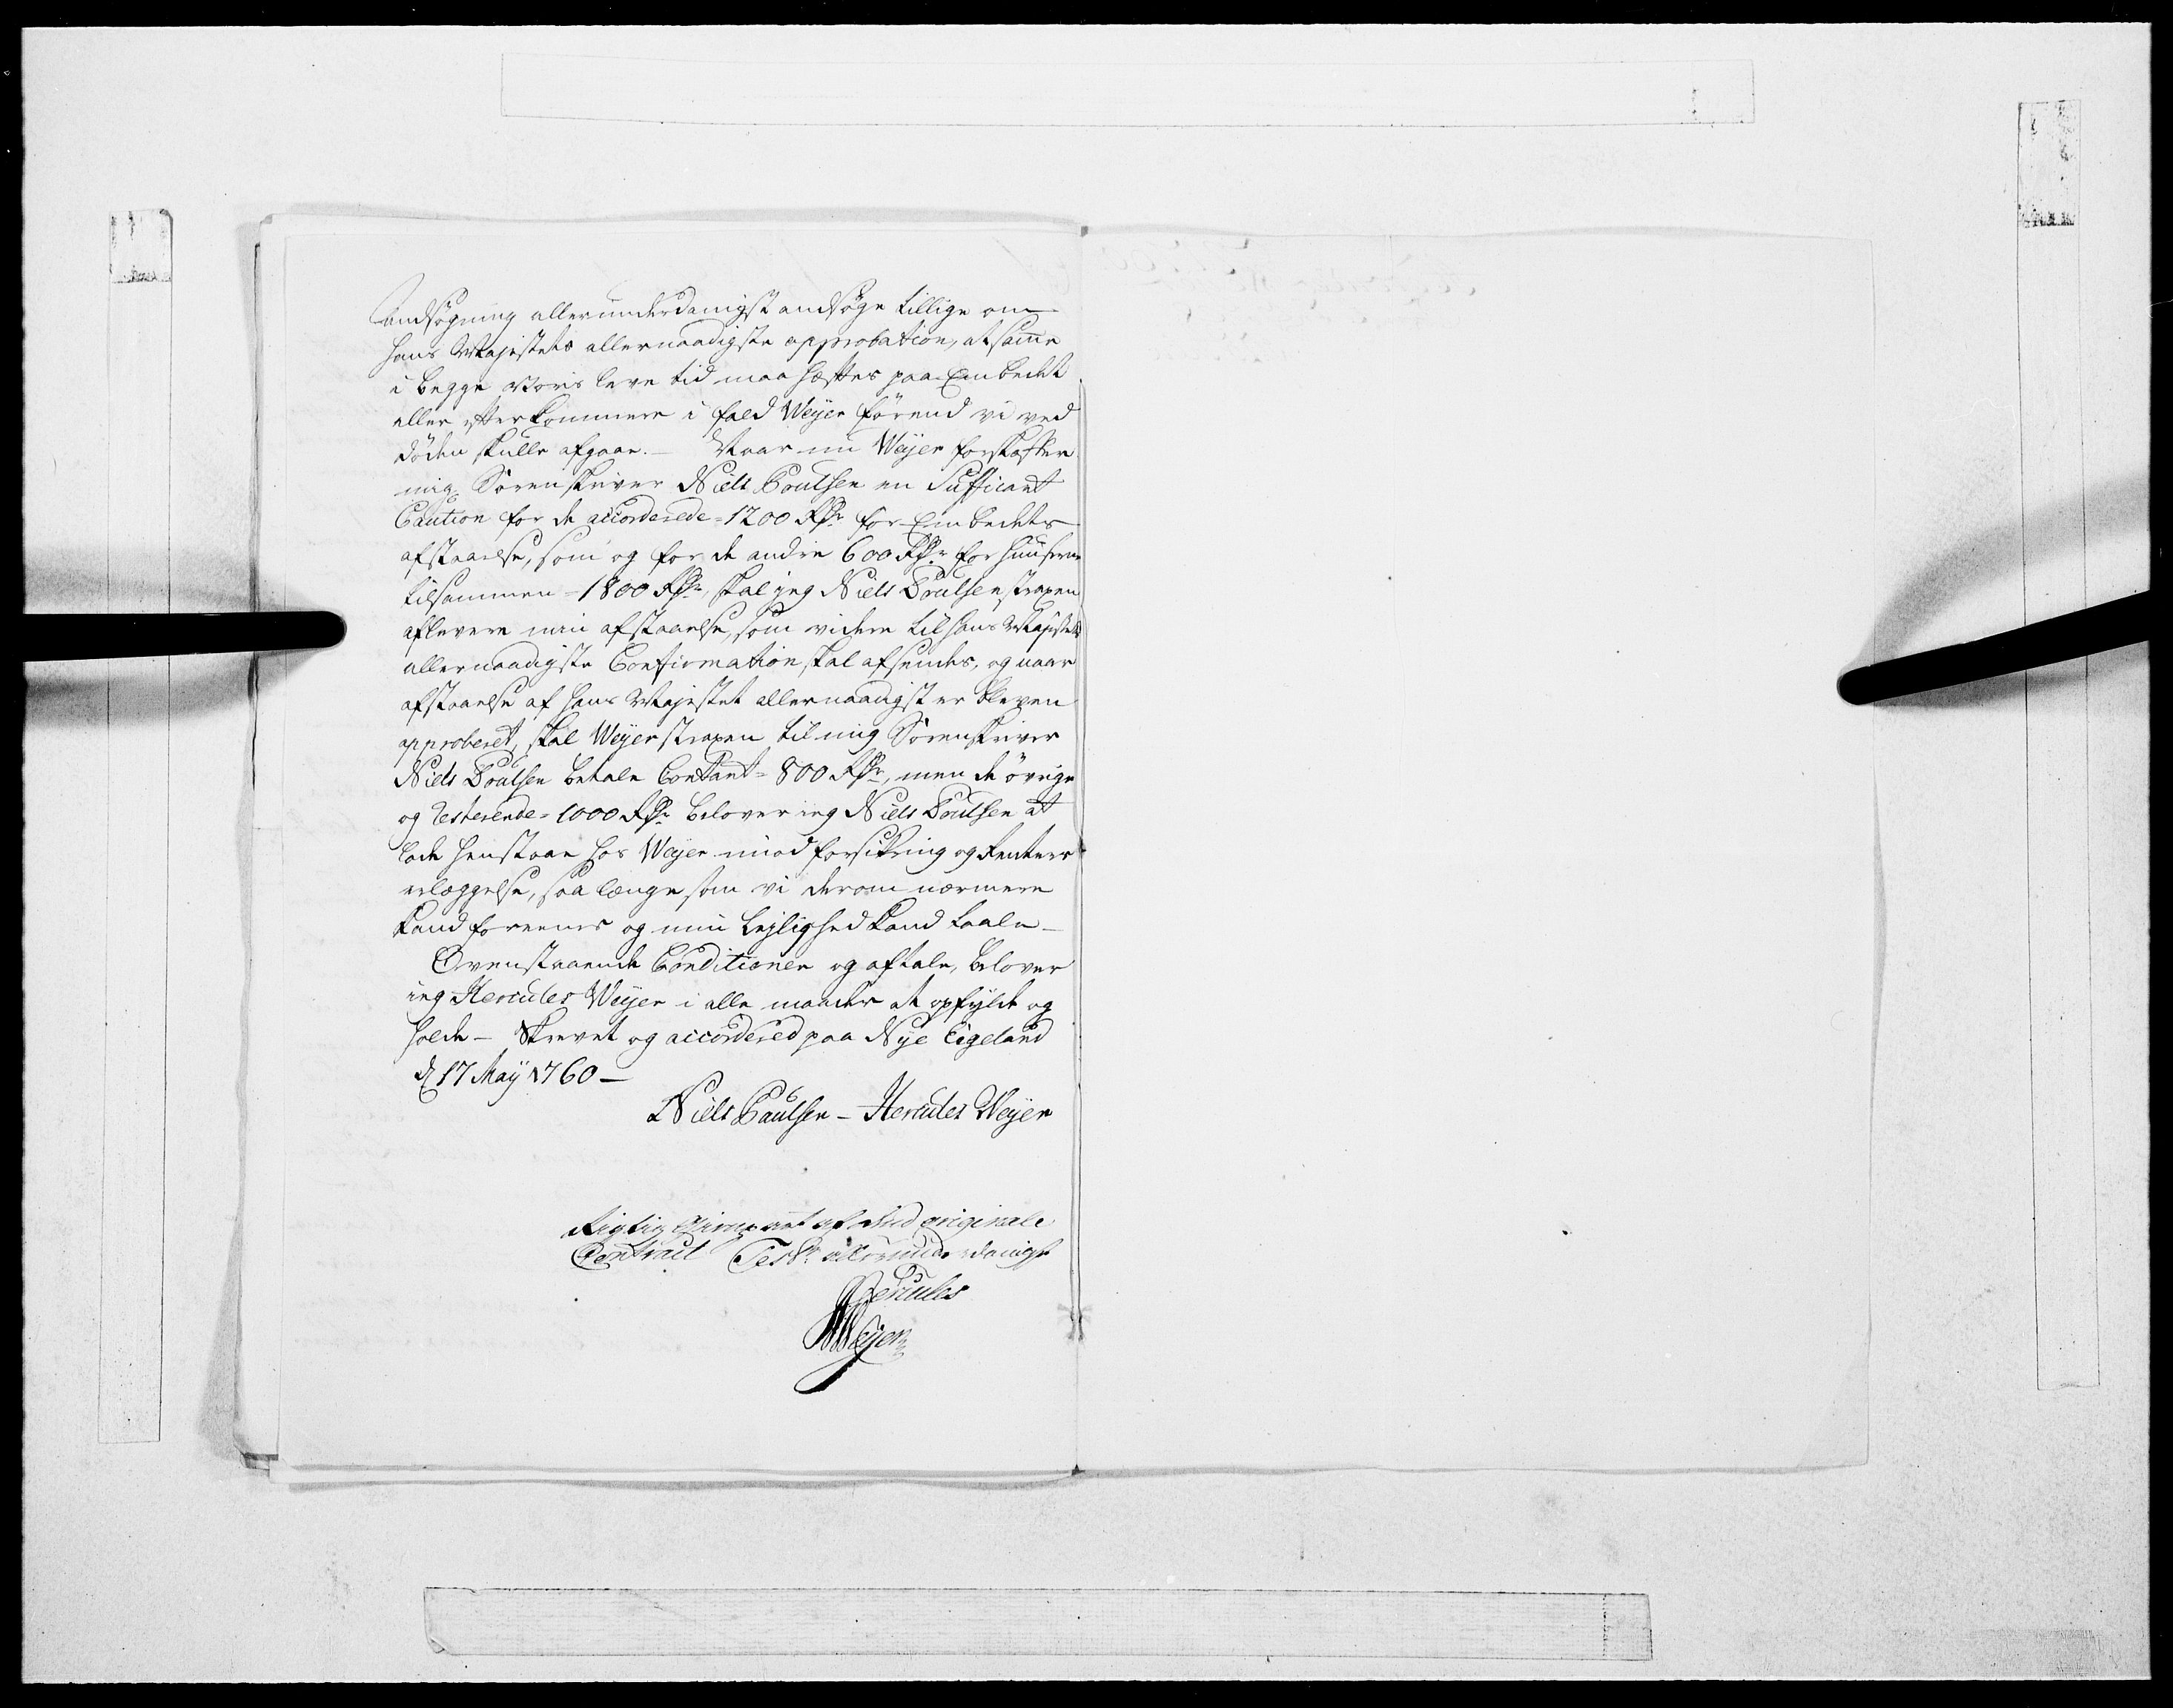 Andsøgning allerunderdanigst andsøge tillige om
Hans Majestets allernaadigste approbation, at samme
i begge voris leve tid maa hæftes paa Embedet
eller efterkommere i fald Weyer førend vi ved
døden skulle afgaae. — Naar nu Weyer forskaffer
mig Sorenskriver Niels Poulsen en Sufficant
Caution for de accorderede = 1200 Rdr for Embedets
afstaaelse, som og for de andre 600 Rdr for Huuserne
tilsammen = 1800 Rdr, skal jeg Niels Poulsen straxen
aflevere min afstaaelse, som videre til Hans Majestets
allernaadigste Confirmation skal afsendes, og naar
afstaaelse af Hans Majestet allernaadigst er bleven
approberet, skal Weyer straxen til mig Sorenskriver
Niels Poulsen betale Contant = 800 Rdr, men de øvrige
og resterende = 1000 Rdr belover ieg Niels Poulsen at
lade henstaae hos Weyer imod forsikring og Renters
erlæggelse, saa længe som vi derom nærmere
kand foreenes og min Lejlighed kand taale —
Ovenstaaende Conditioner og aftale, belover
ieg Hercules Weyer i alle maader at opfylde og
holde — Skrevet og accordered paa Nye Eigeland
d 17 Maij 1760 —
Niels Paulsen — Hercules Weyer
Rigtig af dend originale
Contract Test allerunderdanigst
Hercules
Weyer